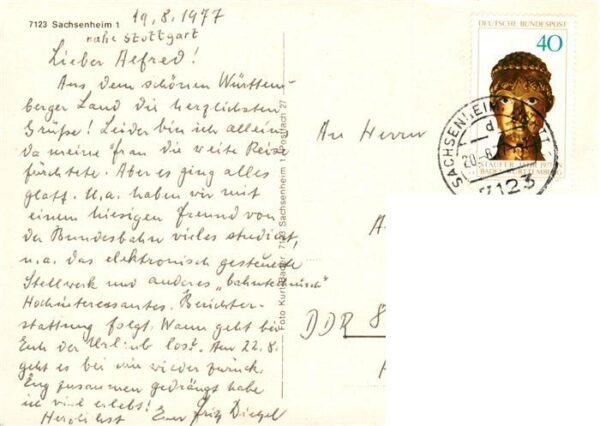 7123 Sachsenheim 1
19.8.1977
nahe Stuttgart
Lieber Alfred!
Aus dem schönen Württem-
berger Land die herzlichsten
Grüße! Leider bin ich allein,
da meine Frau die weite Reise
fürchtete. Aber es ging alles
glatt. U.a. haben wir mit
einem hiesigen Freund von
der Bundesbahn vieles studiert,
u.a. das elektronisch gesteuerte
Stellwerk und anderes
Hochinteressantes. Berichter-
stattung folgt. Wann geht bei
Euch der Urlaub los? Am 22.8.
geht es bei wieder zurück.
Eng zusammen gedrängt habe
ich viel erlebt!
Herzlichst Euer Fritz Diegel
Foto Kurt Bader 7123 Sachsenheim 1 Postfach 27
DEUTSCHE BUNDESPOST
40
STAUFER-JAHR 1977
BADEN-WÜRTTEMBERG
SACHSENHEIM
d
20.8.
7123
An Herrn
A
DDR 8